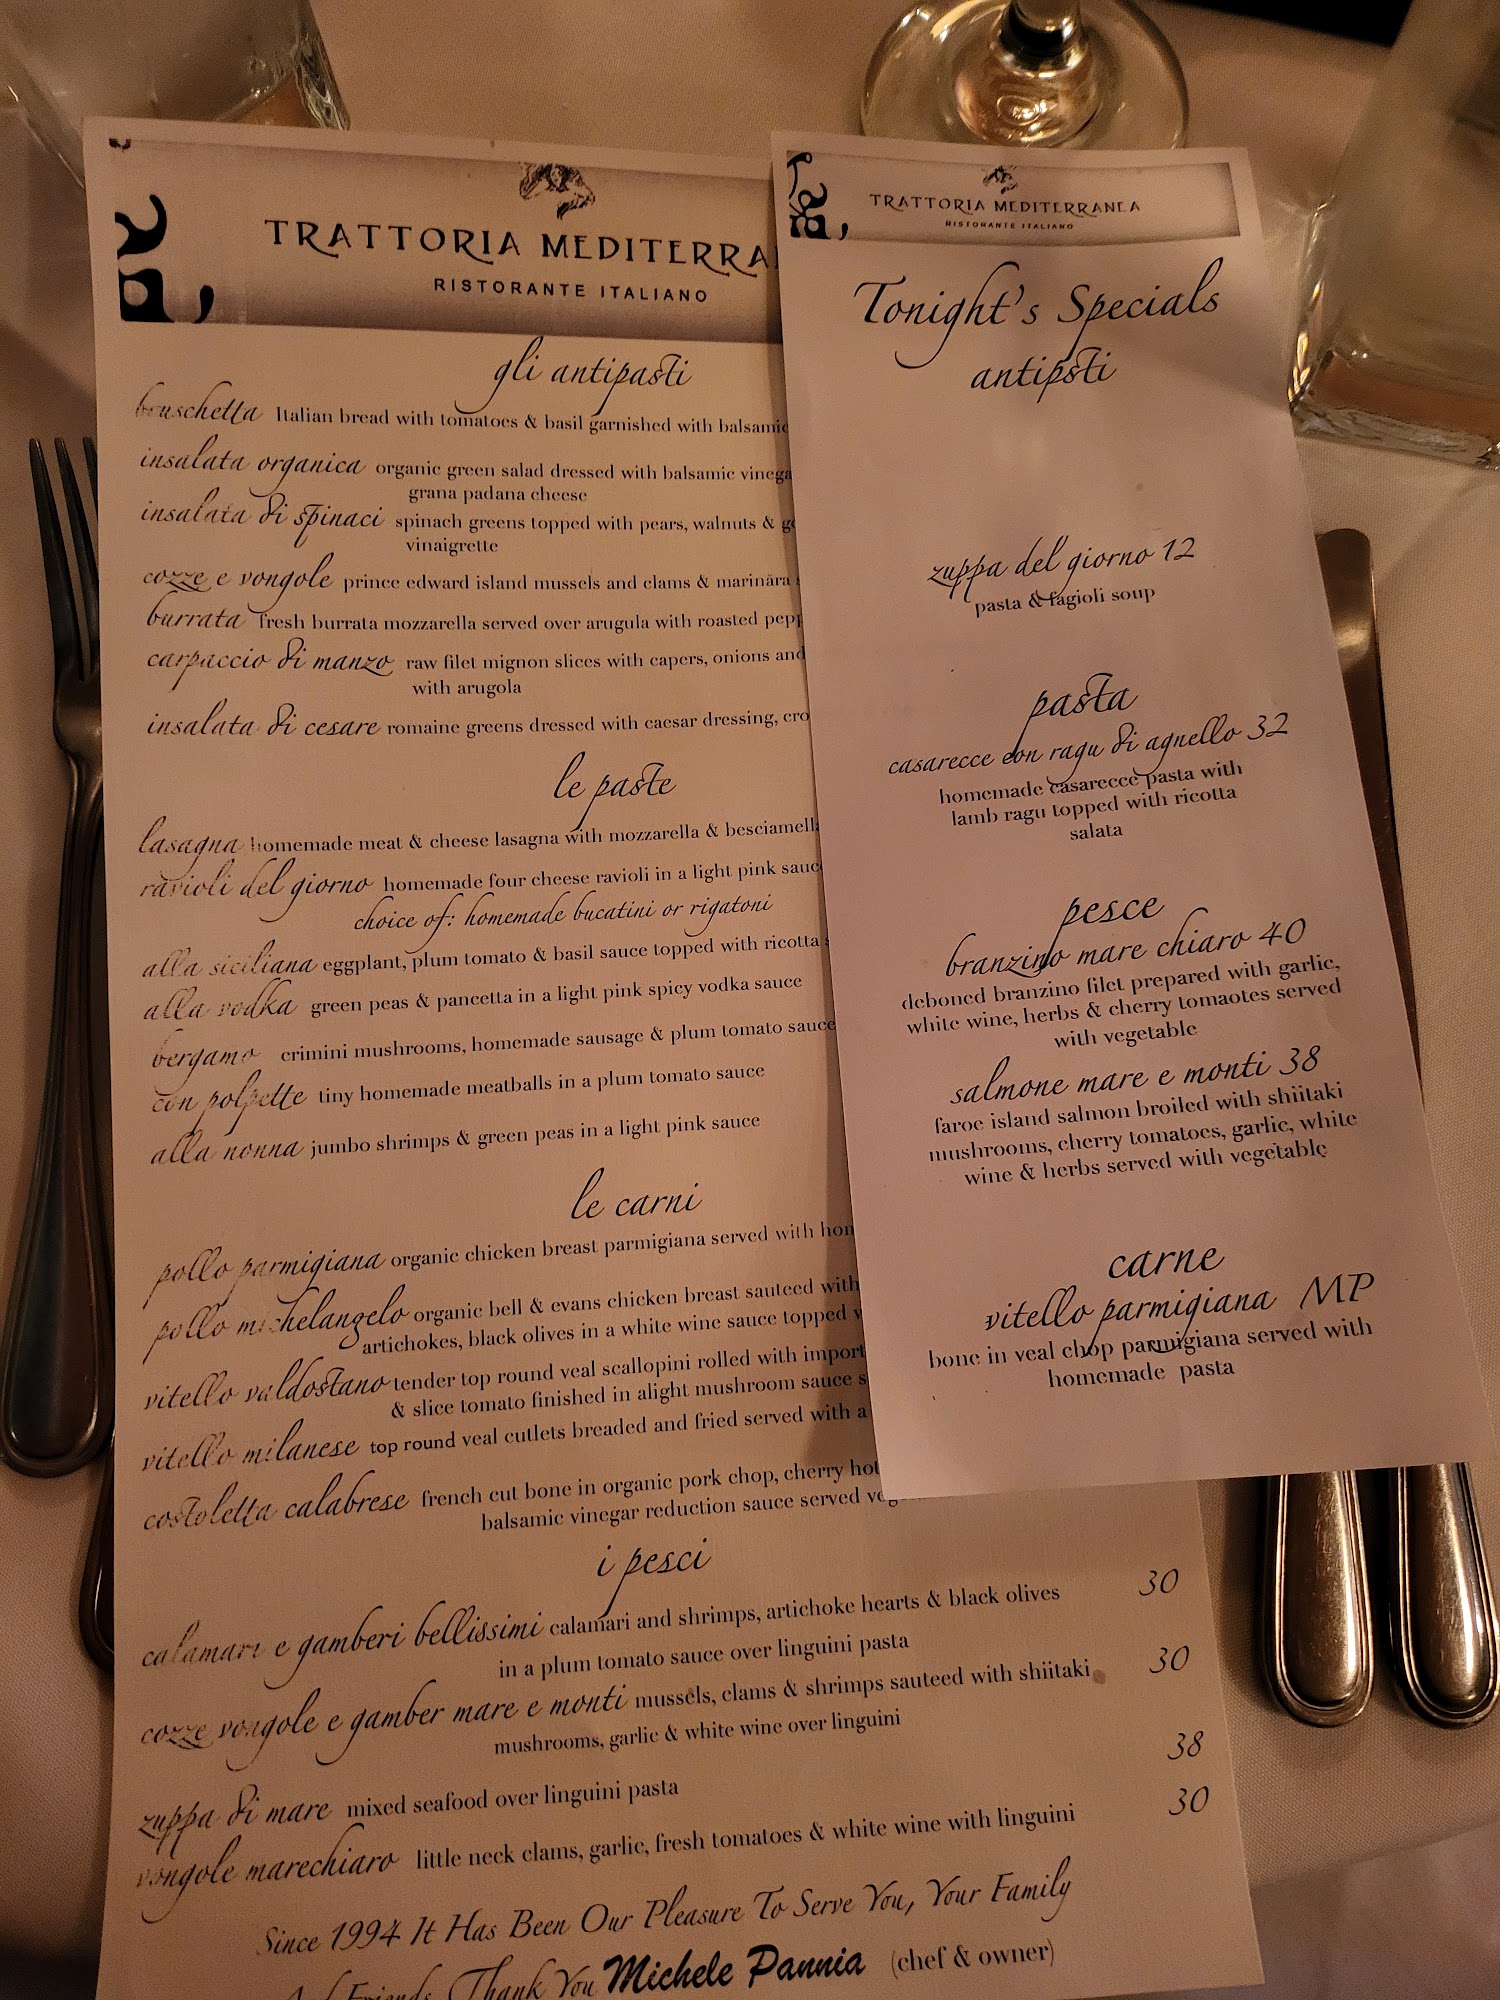 TRATTORIA MEDITERRA
RISTORANTE ITALIANO
gli antipasti
bruschetta Italian bread with tomatoes & basil garnished with balsamic
insalata organica organic green salad dressed with balsamic vinega
grana padana cheese
insalata di spinaci spinach greens topped with pears, walnuts & g
vinaigrette
cozze e vongole prince edward island mussels and clams & marinära
burrata fresh burrata mozzarella served over arugula with roasted pepp
carpaccio di manzo raw filet mignon slices with capers, onions and
with arugola
insalata di cesare romaine greens dressed with caesar dressing, cro
le paste
lasagna homemade meat & cheese lasagna with mozzarella & besciamella
ravioli del giorno homemade four cheese ravioli in a light pink sauc
choice of: homemade bucatini or rigatoni
alla siciliana eggplant, plum tomato & basil sauce topped with ricotta
alla vodka green peas & pancetta in a light pink spicy vodka sauce
bergamo crimini mushrooms, homemade sausage & plum tomato sauce
con polpette tiny homemade meatballs in a plum tomato sauce
alla nonna jumbo shrimps & green peas in a light pink sauce
le carni
pollo parmigiana organic chicken breast parmigiana served with hom
pollo michelangelo organic bell & evans chicken breast sauteed with
artichokes, black olives in a white wine sauce topped
vitello valdostano tender top round veal scallopini rolled with import
& slice tomato finished in alight mushroom sauce s
vitello milanese top round veal cutlets breaded and fried served with a
costoletta calabrese french cut bone in organic pork chop, cherry hot
balsamic vinegar reduction sauce served veg
i pesci
calamari e gamberi bellissimi calamari and shrimps, artichoke hearts & black olives 30
in a plum tomato sauce over linguini pasta
cozze vongole e gamber mare e monti mussels, clams & shrimps sauteed with shiitaki 30
mushrooms, garlic & white wine over linguini
zuppa di mare mixed seafood over linguini pasta 38
vongole marechiaro little neck clams, garlic, fresh tomatoes & white wine with linguini 30
Since 1994 It Has Been Our Pleasure To Serve You, Your Family
And Friends. Thank You Michele Pannia (chef & owner)
TRATTORIA MEDITERRANEA
RISTORANTE ITALIANO
Tonight's Specials
antipsti
zuppa del giorno 12
pasta & fagioli soup
pasta
casarecce con ragu di agnello 32
homemade casarecce pasta with
lamb ragu topped with ricotta
salata
pesce
branzino mare chiaro 40
deboned branzino filet prepared with garlic,
white wine, herbs & cherry tomaotes served
with vegetable
salmone mare e monti 38
faroe island salmon broiled with shiitaki
mushrooms, cherry tomatoes, garlic, white
wine & herbs served with vegetable
carne
vitello parmigiana MP
bone in veal chop parmigiana served with
homemade pasta